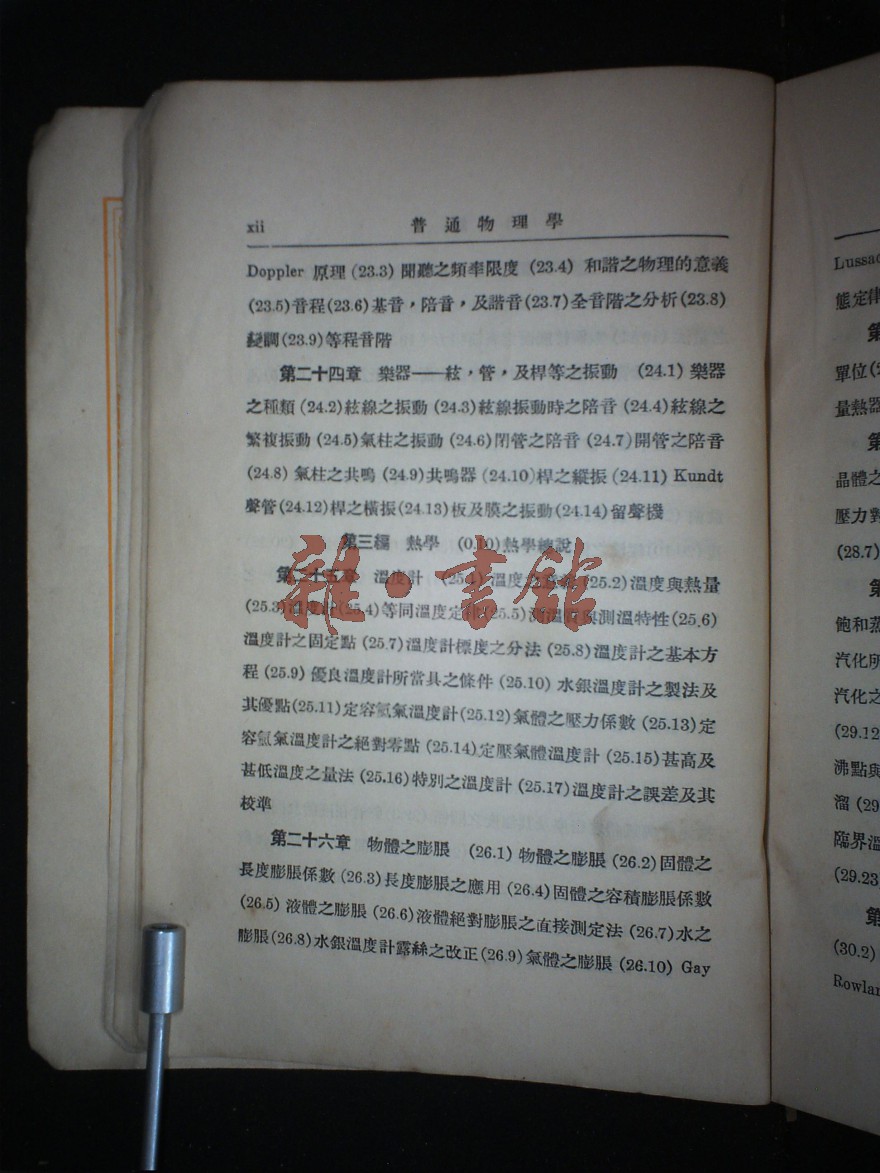 xii 普通物理學
Doppler 原理 (23.3) 聞聽之頻率限度 (23.4) 和諧之物理的意義
(23.5) 音程 (23.6) 基音，陪音，及諧音 (23.7) 全音階之分析 (23.8)
變調 (23.9) 等程音階
第二十四章 樂器——絃，管，及桿等之振動 (24.1) 樂器
之種類 (24.2) 絃線之振動 (24.3) 絃線振動時之陪音 (24.4) 絃線之
繁複振動 (24.5) 氣柱之振動 (24.6) 閉管之陪音 (24.7) 開管之陪音
(24.8) 氣柱之共鳴 (24.9) 共鳴器 (24.10) 桿之縱振 (24.11) Kundt
聲管 (24.12) 桿之橫振 (24.13) 板及膜之振動 (24.14) 留聲機
第三編 熱學 (0.10) 熱學總說
第二十五章 溫度計 (25.1) 溫度之意義 (25.2) 溫度與熱量
(25.3) 溫度計 (25.4) 等同溫度定律 (25.5) 測溫質與測溫特性 (25.6)
溫度計之固定點 (25.7) 溫度計標度之分法 (25.8) 溫度計之基本方
程 (25.9) 優良溫度計所當具之條件 (25.10) 水銀溫度計之製法及
其優點 (25.11) 定容氫氣溫度計 (25.12) 氣體之壓力係數 (25.13) 定
容氫氣溫度計之絕對零點 (25.14) 定壓氣體溫度計 (25.15) 甚高及
甚低溫度之量法 (25.16) 特別之溫度計 (25.17) 溫度計之誤差及其
校準
第二十六章 物體之膨脹 (26.1) 物體之膨脹 (26.2) 固體之
長度膨脹係數 (26.3) 長度膨脹之應用 (26.4) 固體之容積膨脹係數
(26.5) 液體之膨脹 (26.6) 液體絕對膨脹之直接測定法 (26.7) 水之
膨脹 (26.8) 水銀溫度計露絲之改正 (26.9) 氣體之膨脹 (26.10) Gay
雜·書館
Lussac
態定律
第
單位
量熱器
第
晶體之
壓力對
(28.7)
第
飽和蒸
汽化所
汽化之
(29.12
沸點與
溜 (29
臨界溫
(29.23)
第
(30.2)
Rowlan